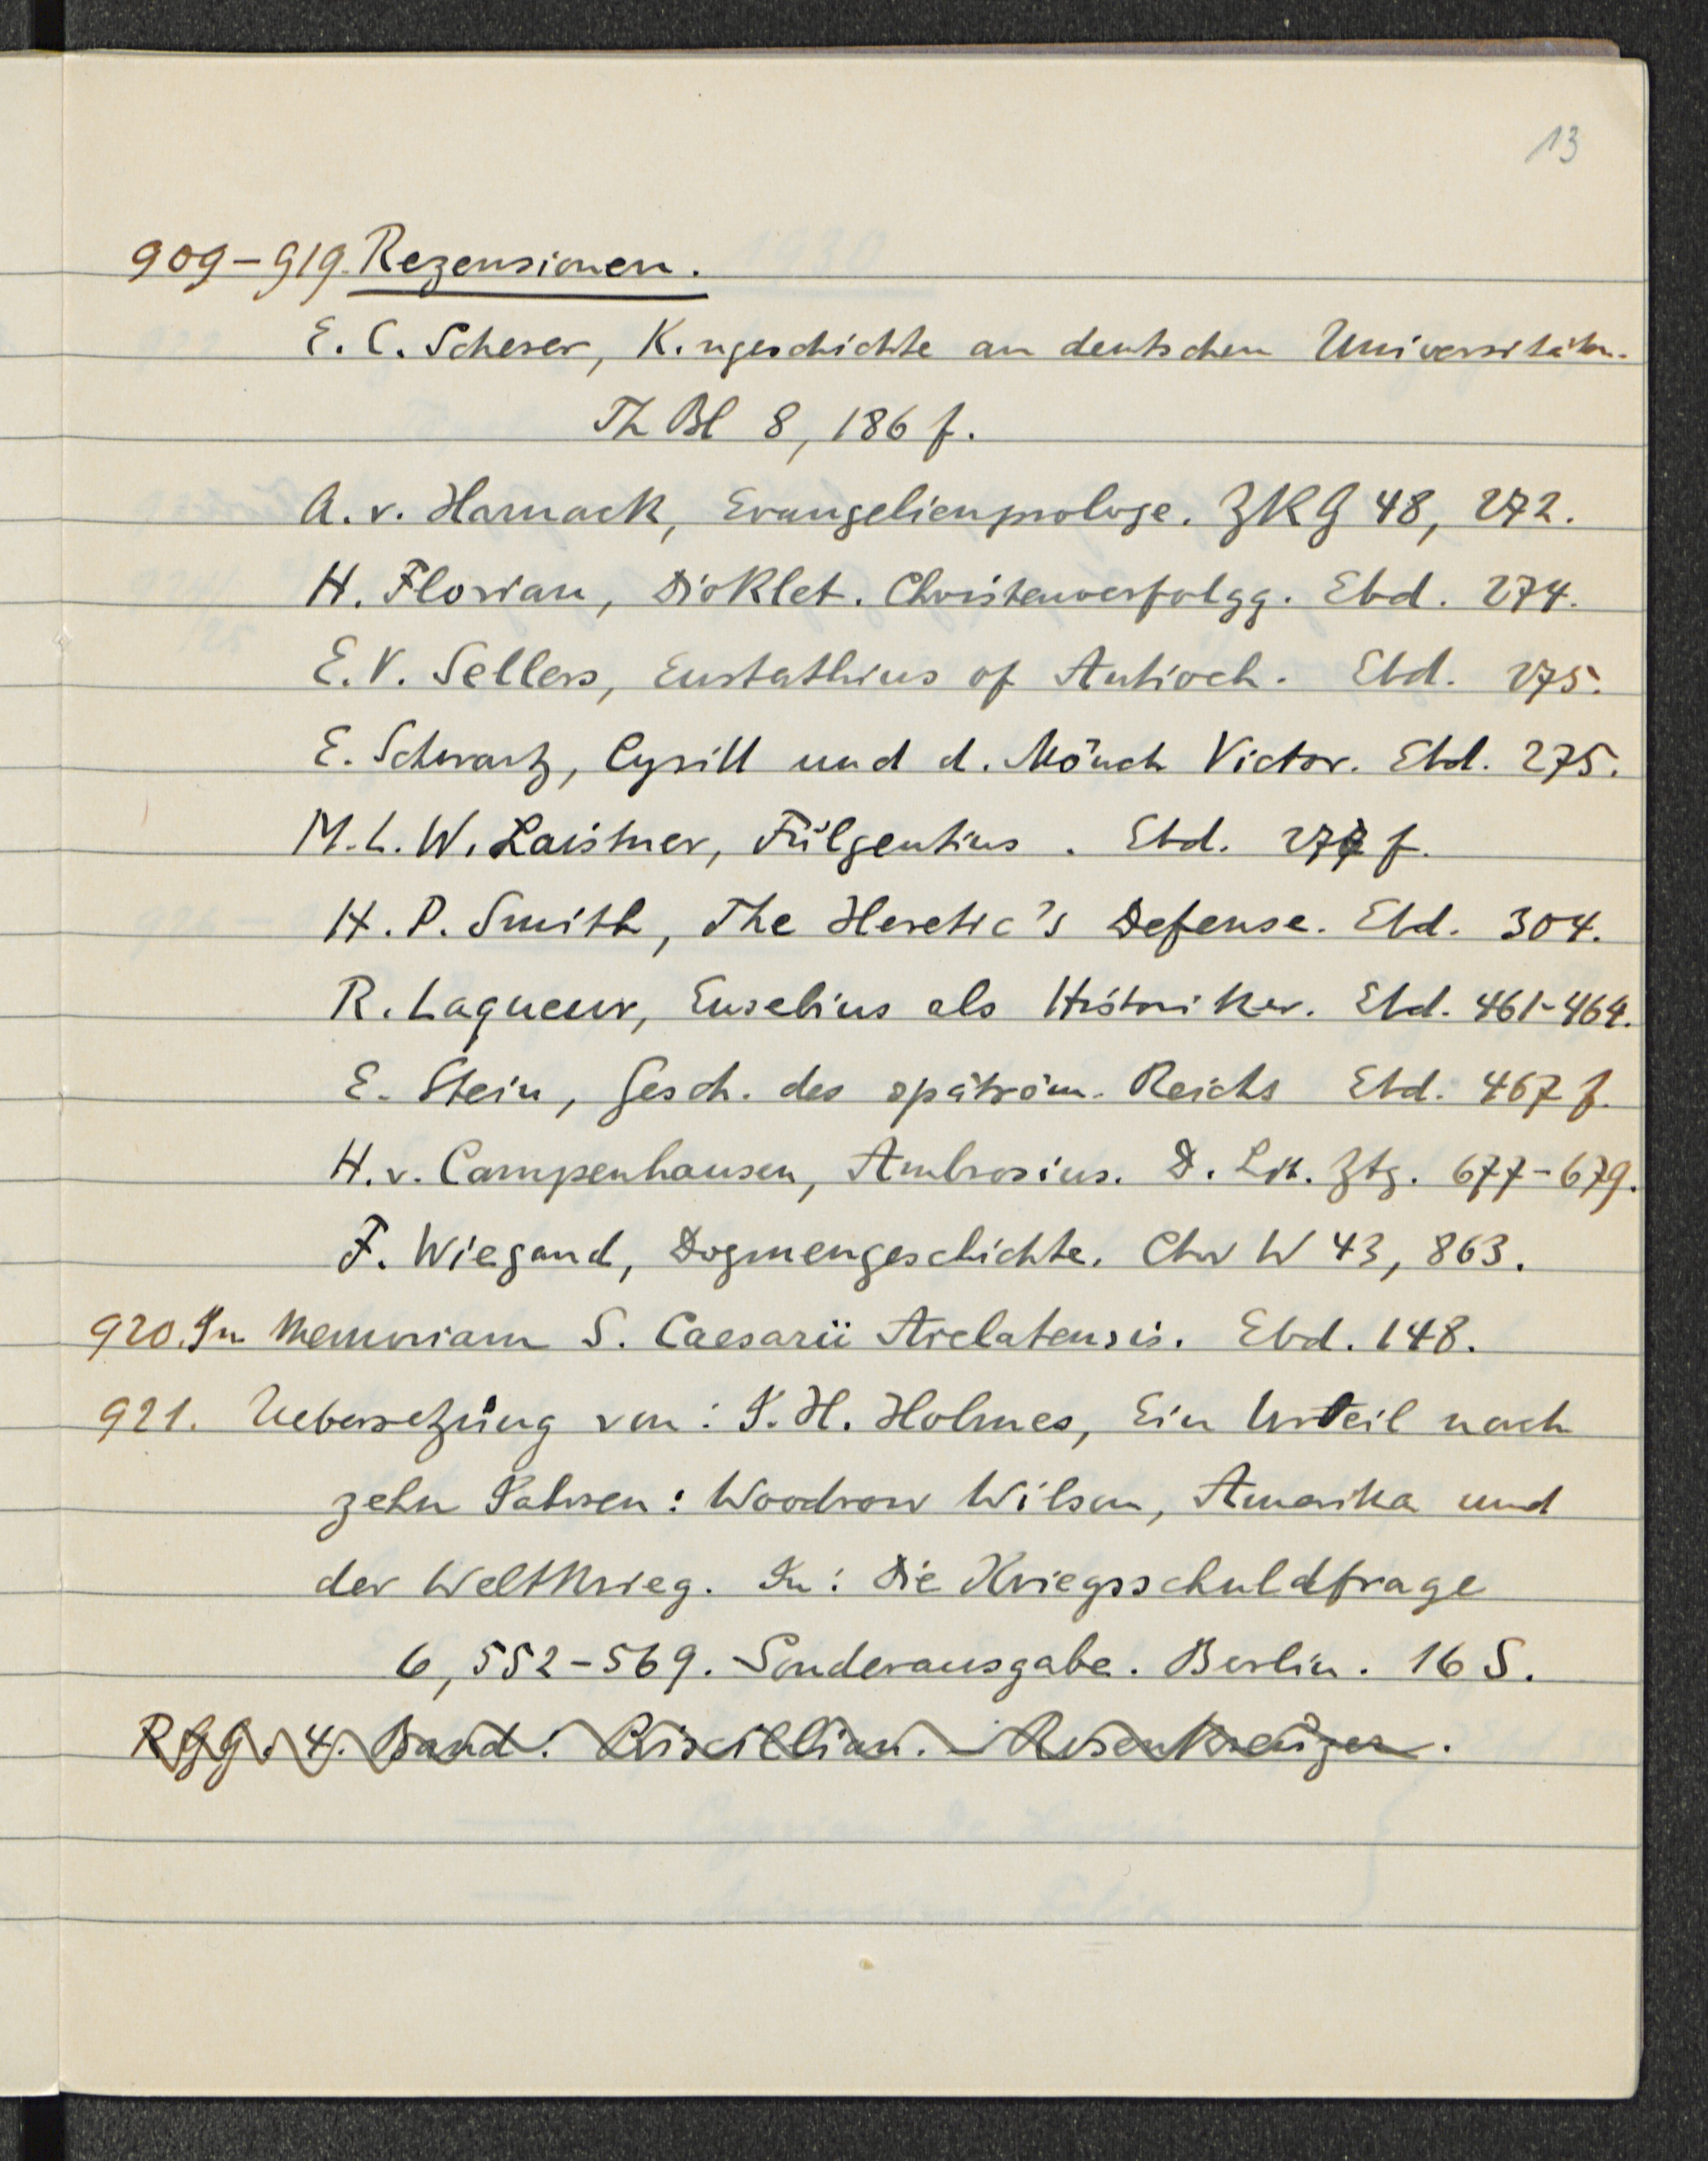 13
909-919. Rezensionen.
E. C. Scherer, K.ngeschichte an deutschen Universitäten.
Th Bl 8, 186 f.
A. v. Harnack, Evangelienprologe. ZKG 48, 272.
H. Florian, Dioklet. Christenverfolgg. Ebd. 274.
E. V. Sellers, Eustathius of Antioch. Ebd. 275.
E. Schwartz, Cyrill und d. Mönch Victor. Ebd. 275.
M. L. W. Laistner, Fulgentius. Ebd. f.
H. P. Smith, The Heretic's Defense. Ebd. 304.
R. Laqueur, Eusebius als Historiker. Ebd. 461-464.
E. Stein, Gesch. des spätröm. Reichs Ebd. 467 f.
H. v. Campenhausen, Ambrosius. D. Lit. Ztg. 677-679.
F. Wiegand, Dogmengeschichte. Chr W 43, 863.
920. In Memoriam S. Caesarii Arelatensis. Ebd. 148.
921. Uebersetzung von: J. H. Holmes, Ein Urteil nach
zehn Jahren: Woodrow Wilson, Amerika und
der Weltkrieg. In: Die Kriegsschuldfrage
6, 552-569. Sonderausgabe. Berlin. 16 S.
RGG. 4. Band: Priscillian. Rosenkreuzer.